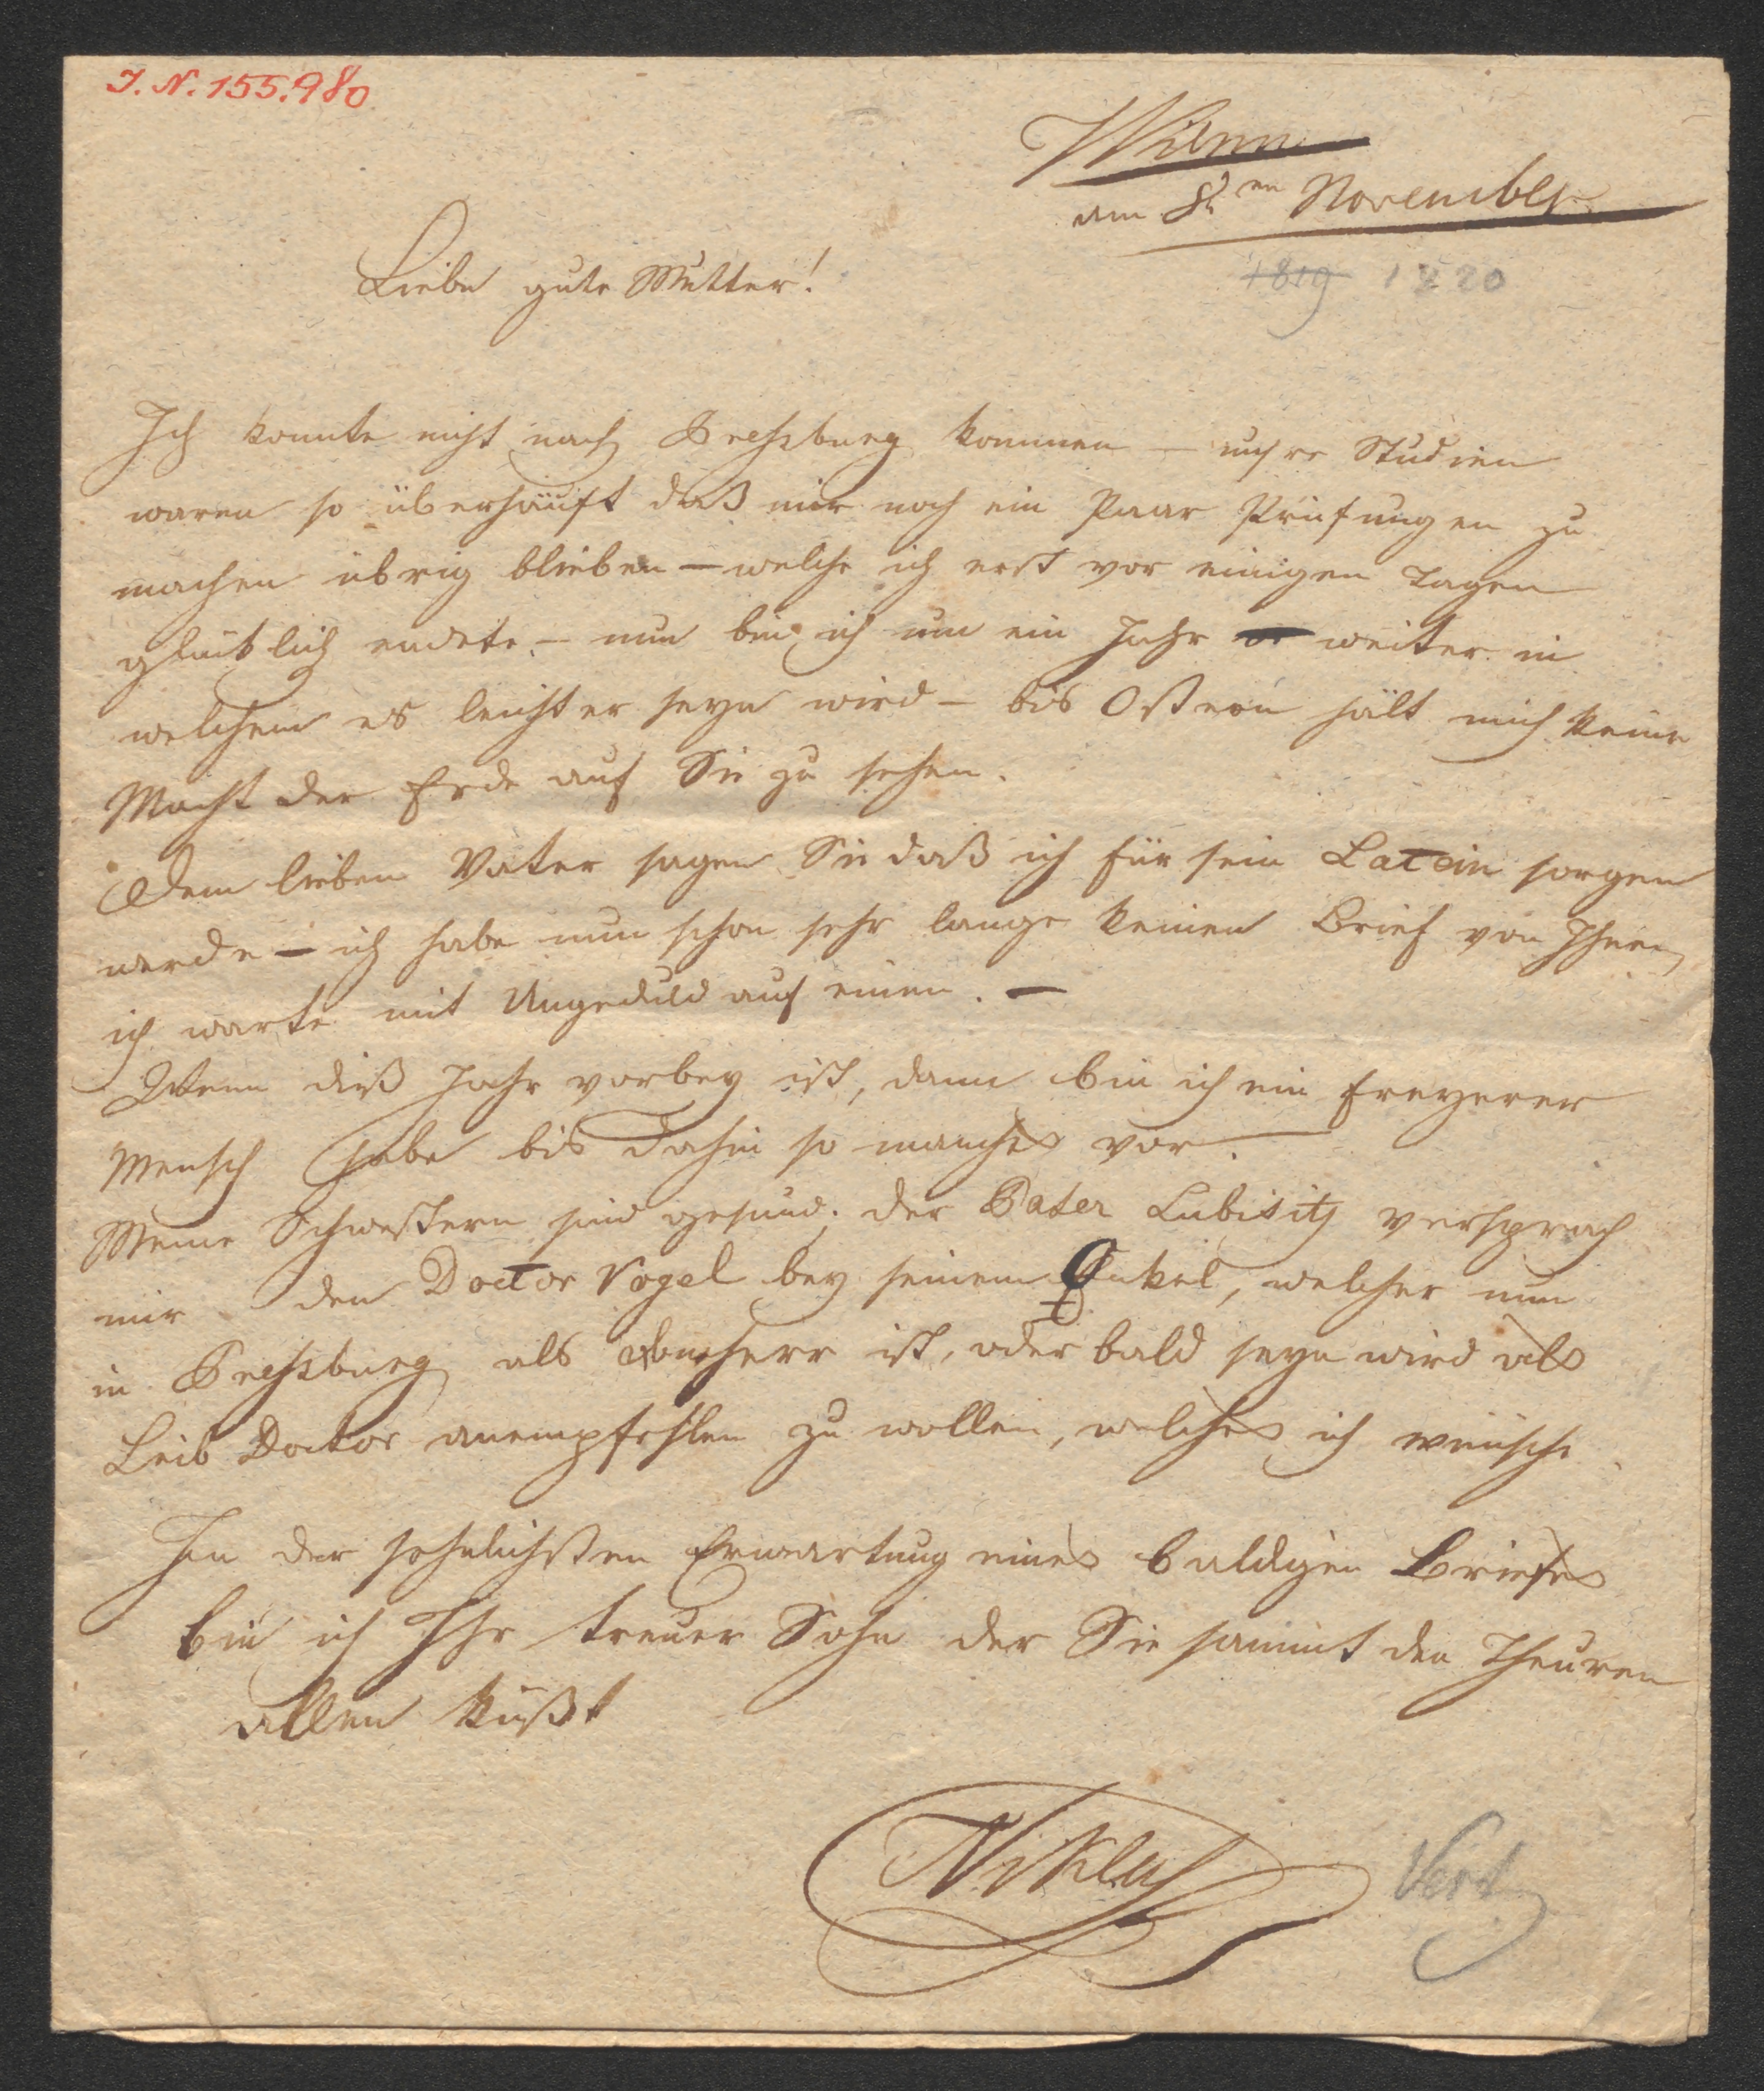 I. N. 155.980
Wienn
am 8ten November
1819 1820
Liebe gute Mutter!
Ich konnte nicht nach Preßburg kommen — unsre Studien
waren so überhäuft daß mir noch ein Paar Prüfungen zu
machen übrig blieben — welche ich erst vor einigen Tagen
glücklich endete. — nun bin ich um ein Jahr weiter in
welchem es leichter seyn wird — bis Ostern hält mich keine
Macht der Erde auf Sie zu sehen.
Dem lieben Vater sagen Sie daß ich für sein Latein sorgen
werde — ich habe nun schon sehr lange keinen Brief von Ihnen
ich warte mit Ungeduld auf einen. —
Wenn diß Jahr vorbey ist, dann bin ich ein freyerer
Mensch habe bis dahin so manches vor.
Meine Schwestern sind gesund. der Pater Lubisitz versprach
mir den Doctor Vogel bey seinem Onkel, welcher nun
in Preßburg als Domherr ist, oder bald seyn wird als
Leib Doctor anempfehlen zu wollen, welches ich wünsche
In der sehnlichsten Erwartung eines baldigen Briefes
bin ich Ihr treuer Sohn der Sie sammt den Theuren
allen küßt
Niklas
Vert